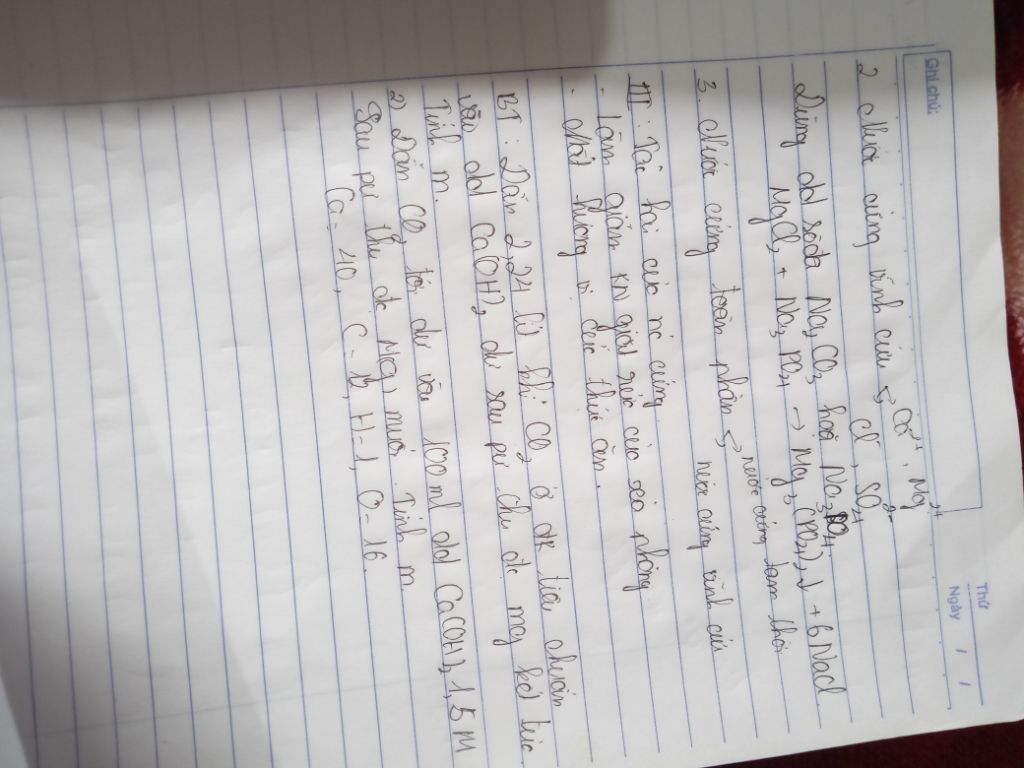 Ghi chú:
Thứ
Ngày / /
2 Nước cứng vĩnh cửu Ca²⁺, Mg²⁺
Cl⁻, SO₄²⁻
Dùng dd sođa Na₂CO₃ hoặc Na₃PO₄
MgCl₂ + Na₃PO₄ → Mg₃(PO₄)₂↓ + 6NaCl
3. Nước cứng toàn phần nước cứng tạm thời
nước cứng vĩnh cửu
III: Tác hại của nc cứng
- Làm giảm KN giặt rửa của xà phòng
- Mất hương vị của thức ăn.
BT: Dẫn 2,24 lít khí CO₂ ở đk tiêu chuẩn
vào dd Ca(OH)₂ dư sau pư thu đc mg kết tủa
Tính m.
2) Dẫn CO₂ tới dư vào 100ml dd Ca(OH)₂ 1,5M
Sau pư thu đc Mg muối. Tính m
Ca = 40, C = 12, H = 1, O = 16.